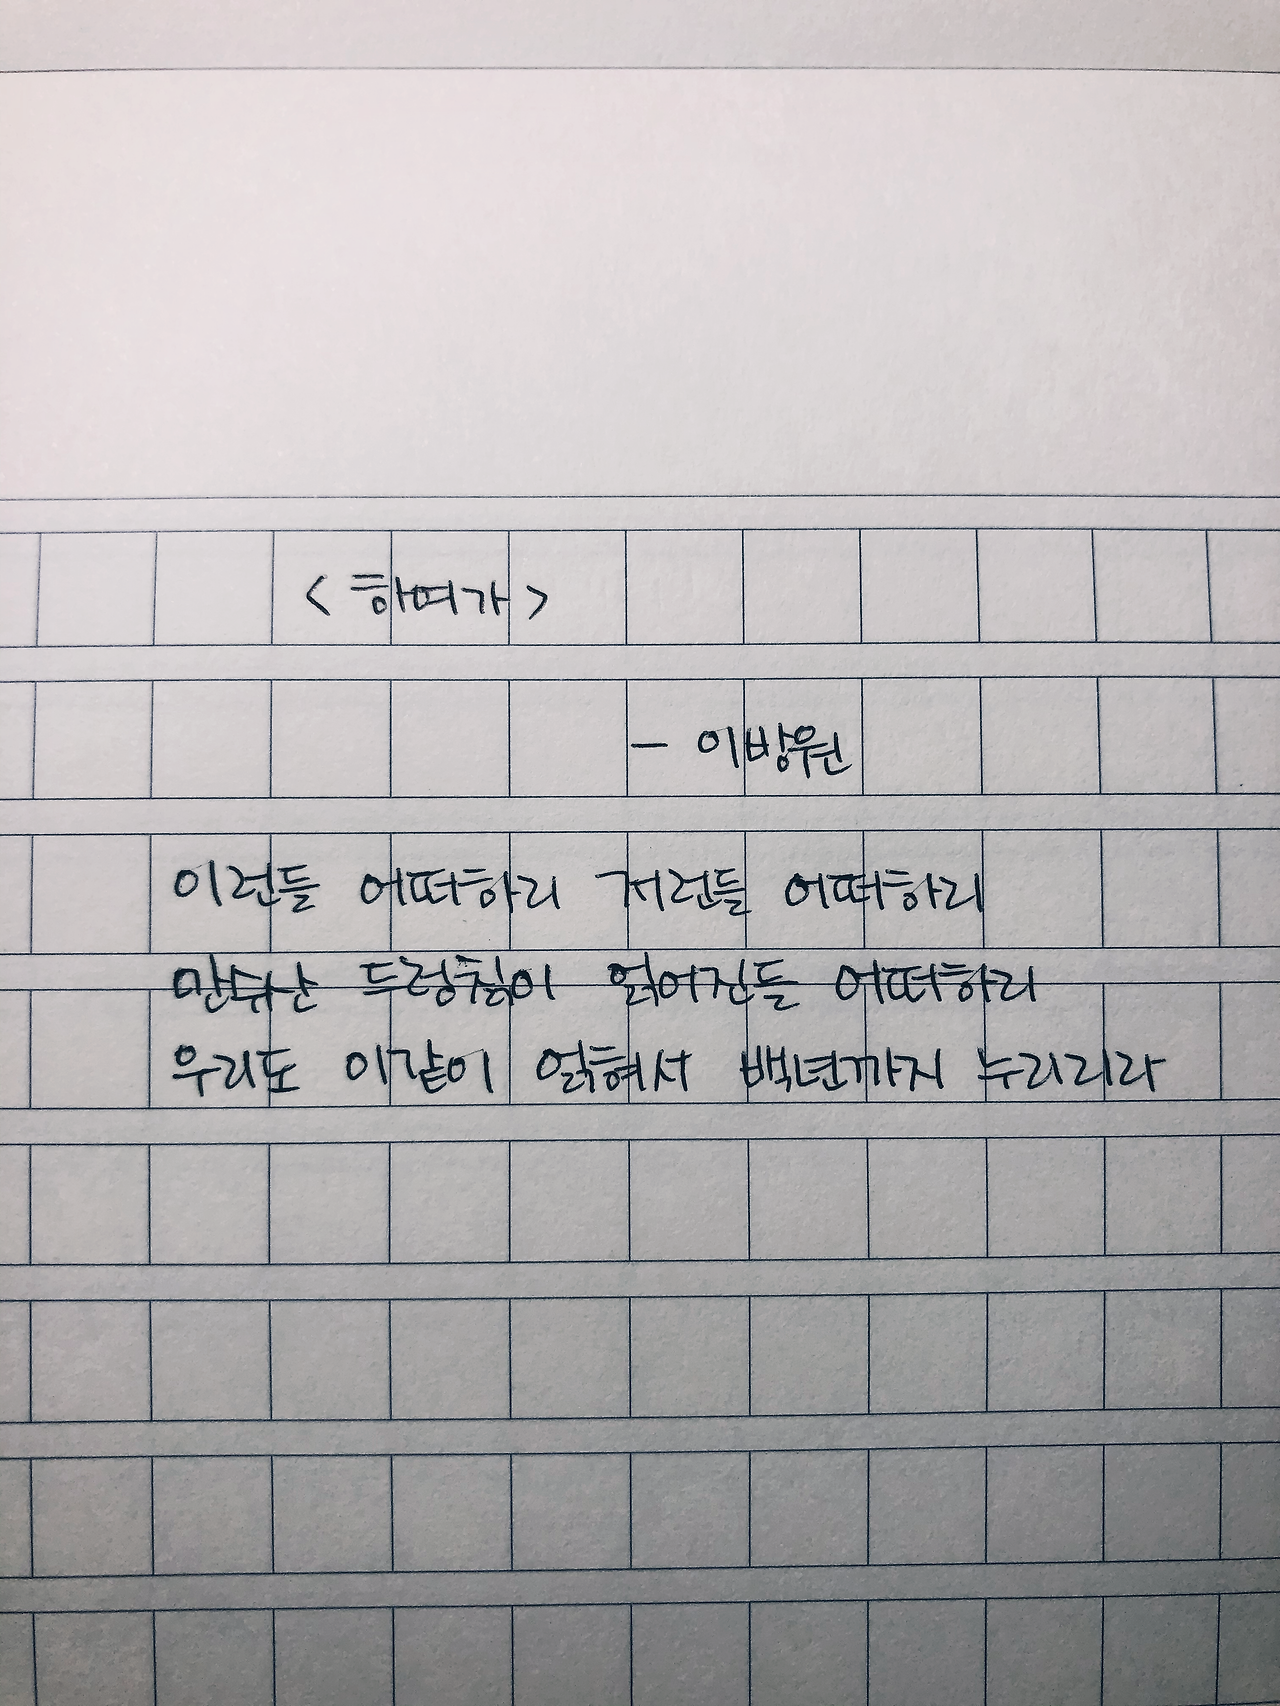 <하여가>
- 이방원
이런들 어떠하리 저런들 어떠하리
만수산 드렁칡이 얽어진들 어떠하리
우리도 이같이 얽혀서 백년까지 누리리라